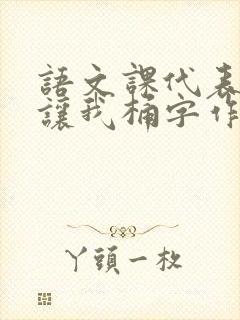 語文課代表
讓我桶字作
丫頭一枚